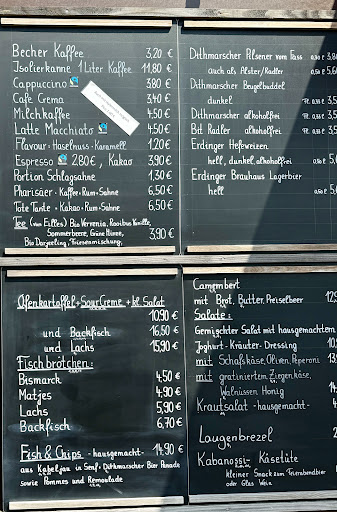 Becher Kaffee 3,20 €
Isolierkanne 1 Liter Kaffee 11,80 €
Cappuccino 3,80 €
Cafe Crema 3,40 €
Milchkaffee 4,50 €
Latte Macchiato 4,50 €
Flavour · Haselnuss · Karamell 1,20 €
Espresso 2,80 €, Kakao 3,90 €
Portion Schlagsahne 1,30 €
Pharisäer · Kaffee · Rum · Sahne 6,50 €
Tote Tante · Kakao · Rum · Sahne 6,50 €
Tee (von Eilles) Bio Vervenia, Rooibus Vanille,
Sommerbeere, Grüne Minze,
Bio Darjeeling, Friesenmischung, 3,90 €
Dithmarscher Pilsener vom Fass 0,30 3,8
auch als Alster/Radler 0,50 5,
Dithmarscher Beugelbuddel
dunkel Fl. 0,33
Dithmarscher alkoholfrei Fl. 0,33
Bit Radler alkoholfrei Fl. 0,33
Erdinger Hefeweizen
hell, dunkel, alkoholfrei 0,50
Erdinger Brauhaus Lagerbier
hell 0,50 5,
Ofenkartoffel + Sour Creme + kl. Salat
10,90 €
und Backfisch 16,50 €
und Lachs 15,90 €
Fischbrötchen:
Bismarck 4,50 €
Matjes 4,90 €
Lachs 5,90 €
Backfisch 6,70 €
Fish & Chips - hausgemacht - 14,90 €
aus Kabeljau in Senf - Dithmarscher Bier Panade
sowie Pommes und Remoulade
Camembert
mit Brot, Butter, Preiselbeer 12,
Salate:
Gemischter Salat mit hausgemachtem
Joghurt - Kräuter - Dressing 10,
mit Schafskäse, Oliven, Peperoni 13,
mit gratiniertem Ziegenkäse,
Walnüssen Honig
Krautsalat - hausgemacht - 4,
Laugenbrezel 2,
Kabanossi - Käsetüte
kleiner Snack zum Feierabendbier
oder Glas Wein